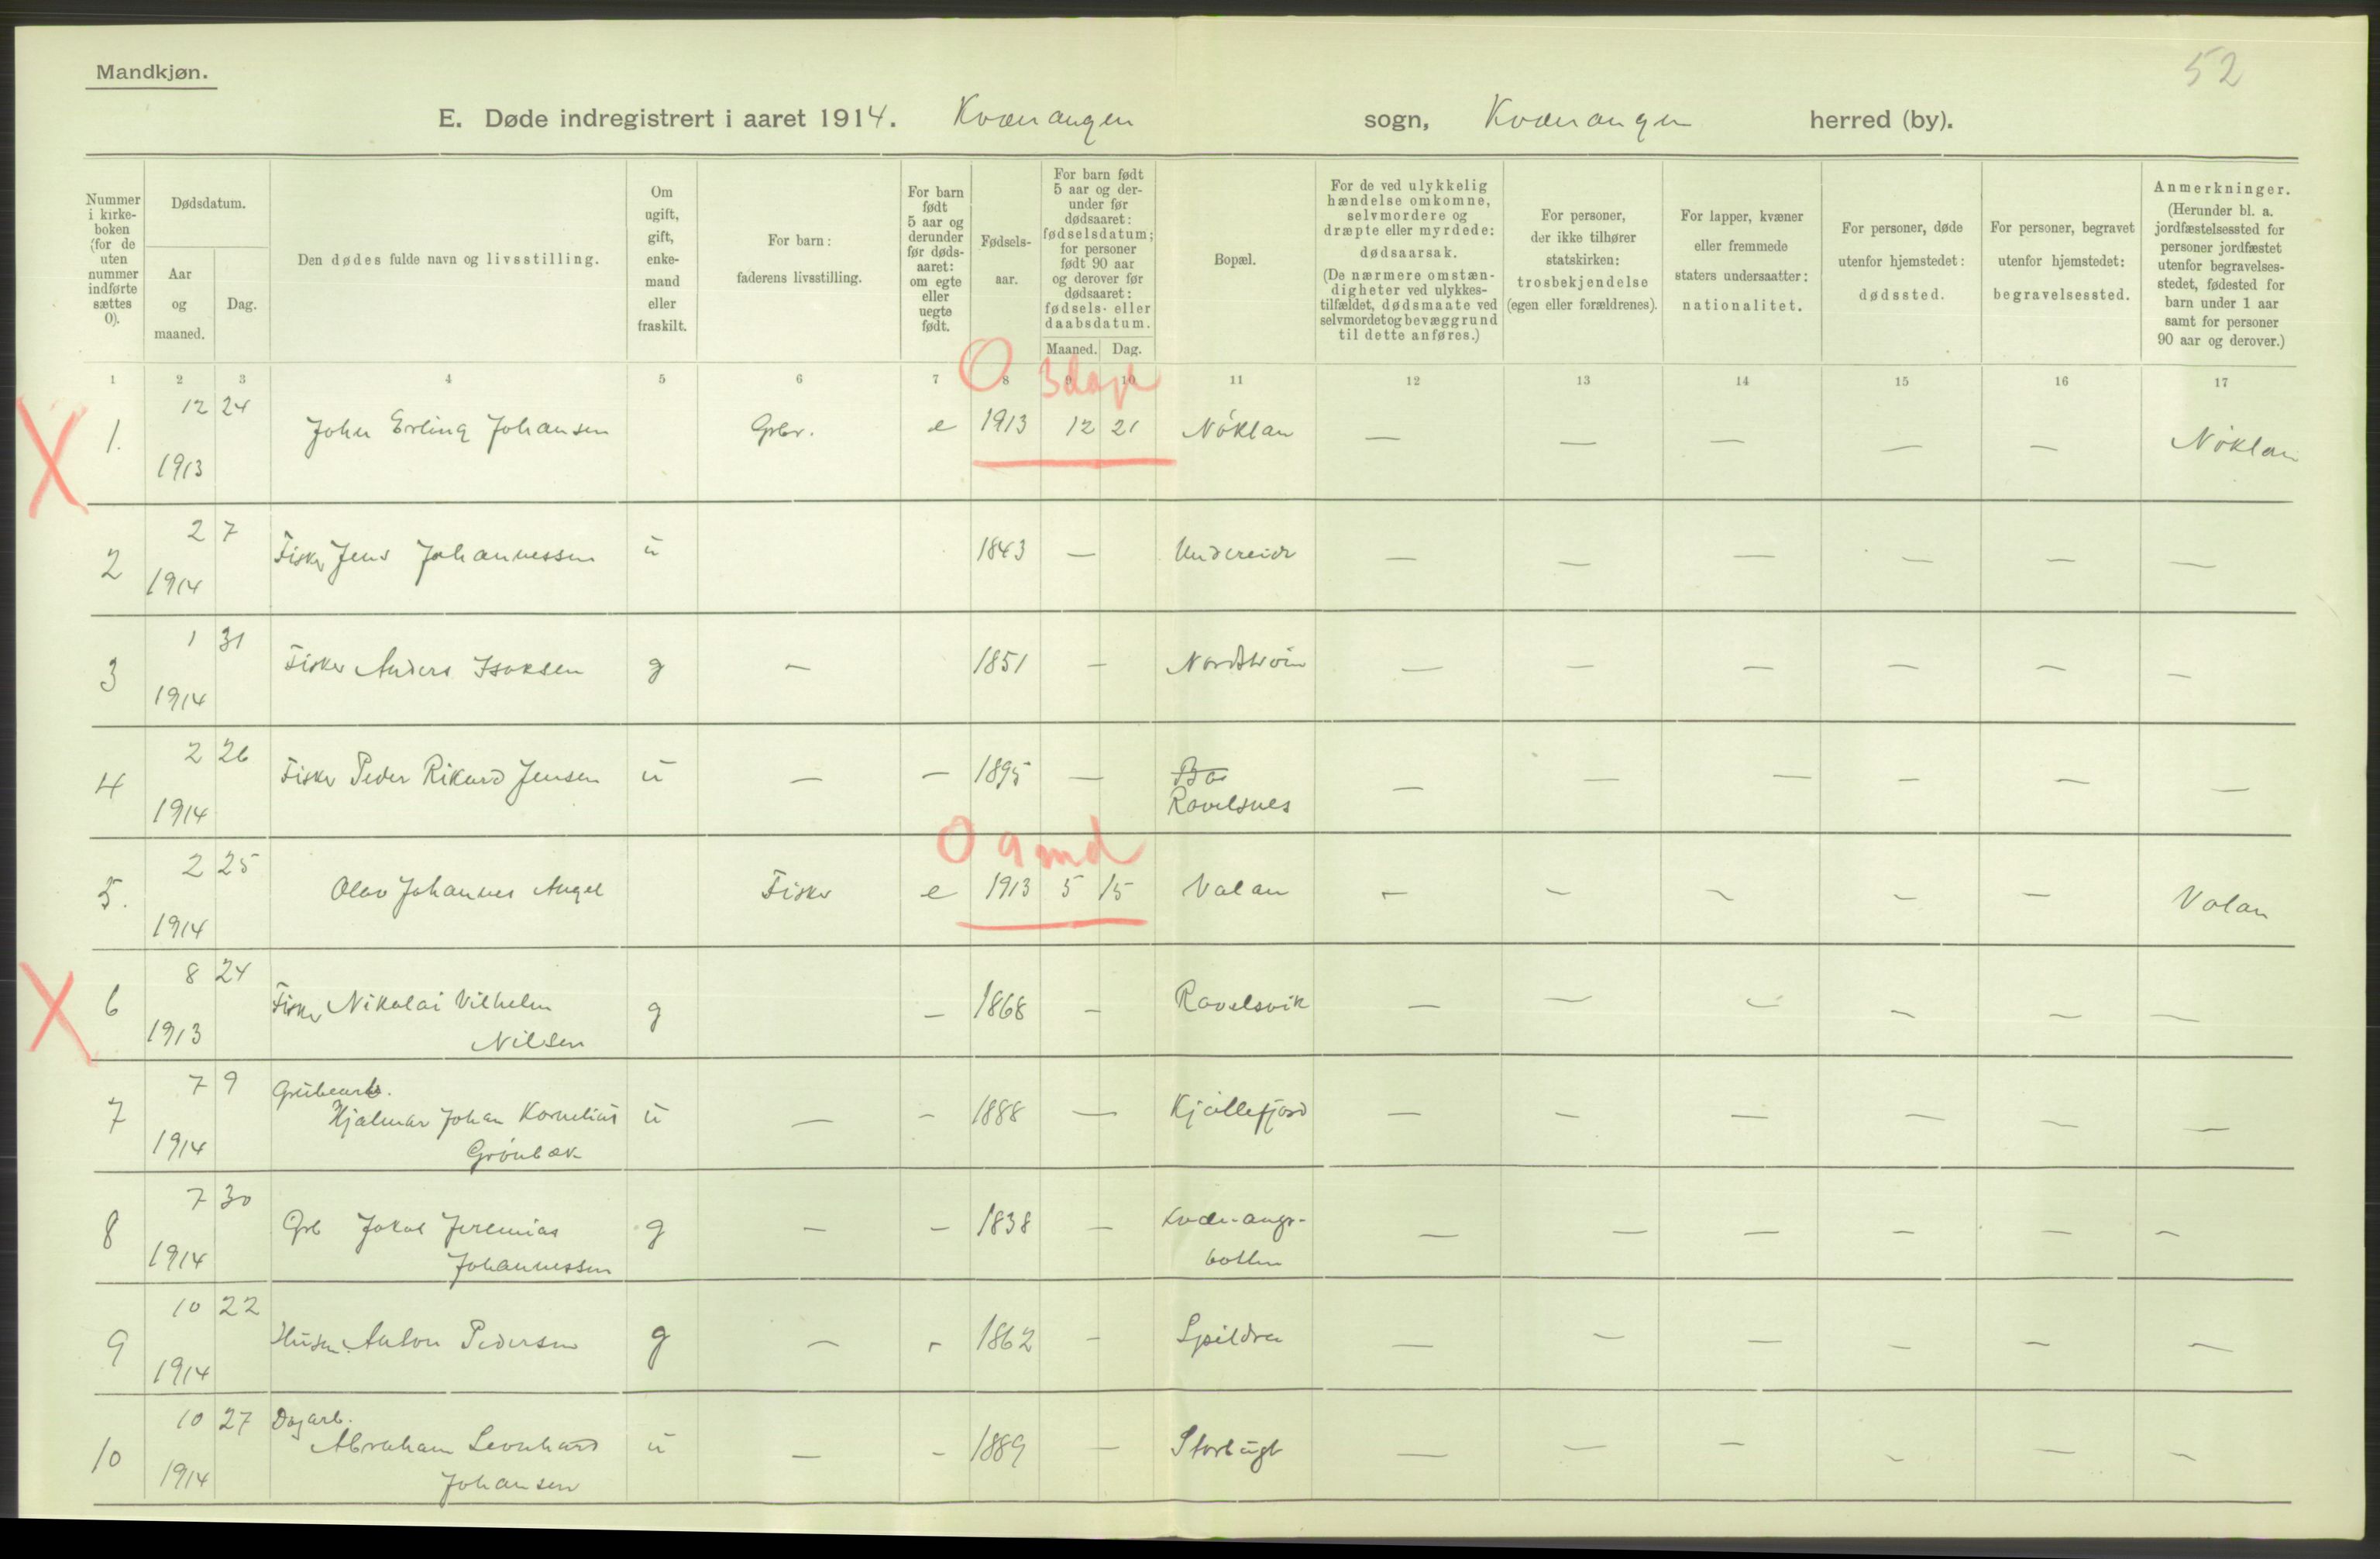 52
Mandkjøn.
E. Døde indregistrert i aaret 1914. Kvænangen sogn, Kvænangen herred (by).
Nummer i kirke-boken (for de uten nummer indførte sættes 0).
Dødsdatum.
Aar og maaned.
Dag.
Den dødes fulde navn og livsstilling.
Om ugift, gift, enke-mand eller fraskilt.
For barn: faderens livsstilling.
For barn født 5 aar og derunder før døds-aaret: om egte eller uegte født.
Fødsels-aar.
For barn født 5 aar og der-under før dødsaaret: fødselsdatum; for personer født 90 aar og derover før dødsaaret: fødsels- eller daabsdatum.
Maaned. Dag.
Bopæl.
For de ved ulykkelig hændelse omkomne, selvmordere og dræpte eller myrdede: dødsaarsak. (De nærmere omstæn-digheter ved ulykkes-tilfældet, dødsmaate ved selvmordet og bevæggrund til dette anføres.)
For personer, der ikke tilhører statskirken: trosbekjendelse (egen eller forældrenes).
For lapper, kvæner eller fremmede staters undersaatter: nationalitet.
For personer, døde utenfor hjemstedet: dødssted.
For personer, begravet utenfor hjemstedet: begravelsessted.
Anmerkninger. (Herunder bl. a. jordfæstelsessted for personer jordfæstet utenfor begravelses-stedet, fødested for barn under 1 aar samt for personer 90 aar og derover.)
1 2 3 4 5 6 7 8 9 10 11 12 13 14 15 16 17
0 3 dage
X 1. 12 24 1913 John Erling Johansen Gbr. e 1913 12 21 Nöklan — — — — — Nöklan
2 2 7 1914 Fisker Jens Johannessen u 1843 — Undereidr — — — — — —
3 1 31 1914 Fisker Anders Isaksen g — 1851 — — — — — — —
4 2 26 1914 Fisker Peder Rikard Jensen u — — 1895 — Bo Ravelsnes — — — — — —
0 9 md
5. 2 25 1914 Olav Johannes Angel Fisker e 1913 5 15 Valan — — — — — Valan
X 6 8 24 1913 Fisker Nikolai Vilhelm Nilsen g — 1868 — Ravelsvik — — — — — —
7 7 9 1914 Grubearb. Hjalmar Johan Kornelius Grönbæk u — — 1888 — Kjøllefjord — — — — — —
8 7 30 1914 Grb Jakob Jeremias Johannessen g — — 1838 — Kvæn-angs-botten — — — — — —
9 10 22 1914 Husm. Anton Pedersen g — — 1862 — Spildra — — — — — —
10 10 27 1914 Dagarb. Abraham Leonhard Johansen u — — 1889 — Storbugt — — — — — —